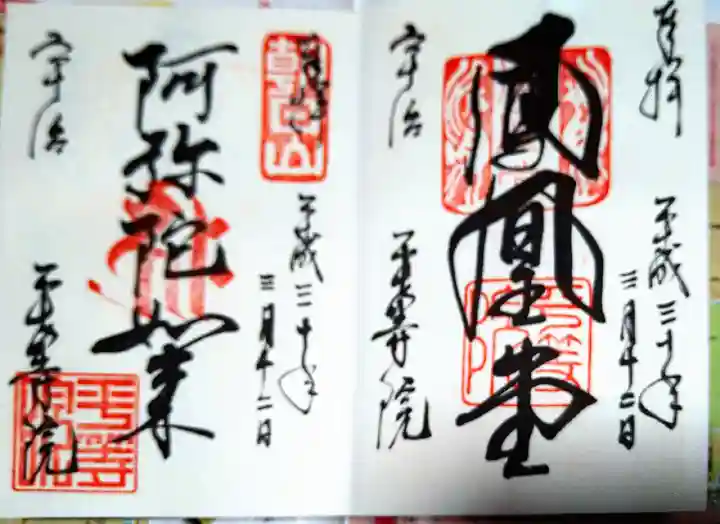 奉拝
平成三十年
三月十二日
鳳凰堂
宇治
平等院
奉拝
朝日山
平成三十年
三月十二日
阿弥陀如来
宇治
平等院
平等院